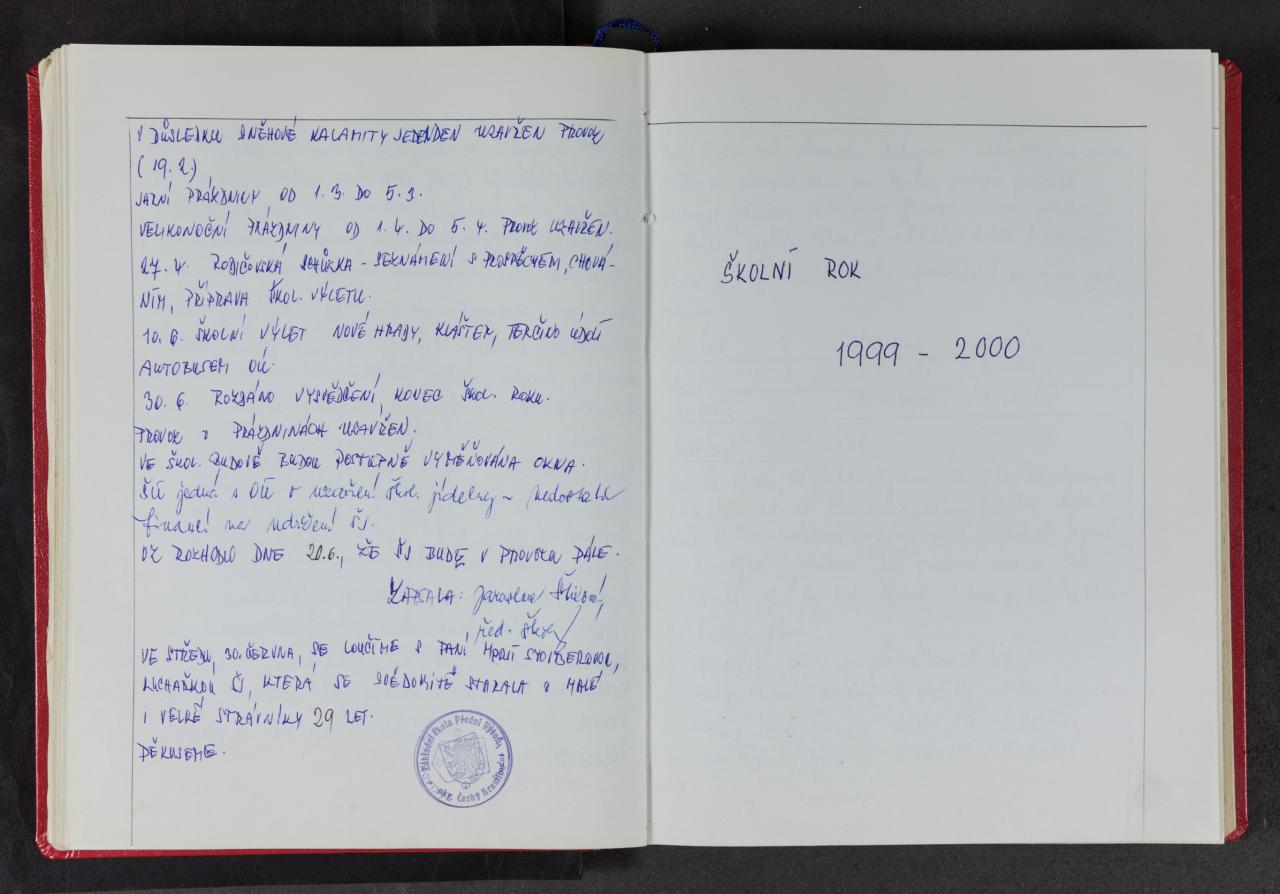 V DŮSLEDKU SNĚHOVÉ KALAMITY JEDENDEN UZAVŘEN PROVOZ
(19.2.)
JARNÍ PRÁZDNINY OD 1.3. DO 5.3.
VELIKONOČNÍ PRÁZDNINY OD 1.4. DO 5.4. PROVOZ UZAVŘEN.
27.4. RODIČOVSKÁ SCHŮZKA - SEZNÁMENÍ S PROSPĚCHEM, CHOVÁ-
NÍM, PŘÍPRAVA ŠKOL. VÝLETU.
10.6. ŠKOLNÍ VÝLET NOVÉ HRADY, KLÁŠTER, TERČINO ÚDOLÍ
AUTOBUSEM OÚ.
30.6. ROZDÁNO VYSVĚDČENÍ, KONEC ŠKOL. ROKU.
PROVOZ O PRÁZDNINÁCH UZAVŘEN.
VE ŠKOL. BUDOVĚ BUDOU POSTUPNĚ VYMĚŇOVÁNA OKNA.
ŠÚ jedná s OÚ o uzavření škol. jídelny - nedostatek
financí na udržení ŠJ.
OZ ROZHODLO DNE 20.6., ŽE ŠJ BUDE V PROVOZU DÁLE.
ZAPSALA: Jaroslava
řed. školy
VE STŘEDU, 30. ČERVNA, SE LOUČÍME S PANÍ MARIÍ
KUCHAŘKOU ŠJ, KTERÁ SE SVĚDOMITĚ STARALA O MALÉ
I VELKÉ STRÁVNÍKY 29 LET.
DĚKUJEME.
Základní škola Přední Výtoň
okr. Český Krumlov
ŠKOLNÍ ROK
1999 - 2000